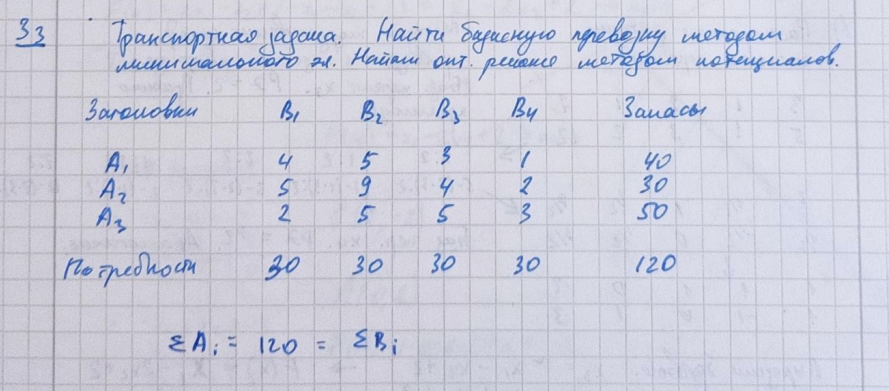 33 Транспортная задача. Найти базисную перевозку методом
минимального эл. Найти опт. решение методом потенциалов.
Заголовки B₁ B₂ B₃ B4 Запасы
A₁ 4 5 3 1 40
A₂ 5 9 4 2 30
A₃ 2 5 5 3 50
Потребности 30 30 30 30 120
ΣAᵢ = 120 = ΣBᵢ